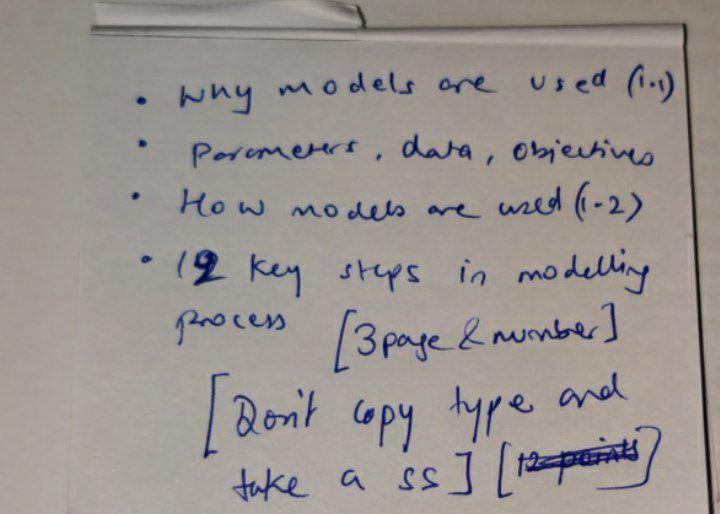 • Why models are used (1.1)
• Parameters, data, objectives
• How models are used (1-2)
• 12 key steps in modelling
process [3 page & number]
[Don't copy type and
take a ss] [12 points]